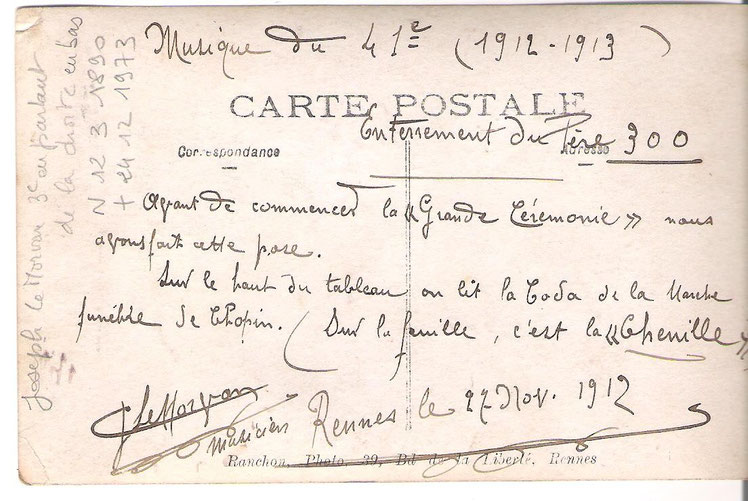 Musique du 41e (1912-1913)
CARTE POSTALE
Enterrement du Père 300
Correspondance
Adresse
Avant de commencer la «Grande Cérémonie» nous
avons fait cette pose.
Sur le haut du tableau on lit la Coda de la Marche
funèbre de Chopin. (Sur la feuille, c'est la «Chenille»
J Le Morvan
musicien
Rennes le 27 Nov. 1912
Ranchon, Photo, 39, Bd de la Liberté, Rennes
Joseph Le Morvan 3e en partant
de la droite en bas
N 12 3 1890
+ 24 12 1973